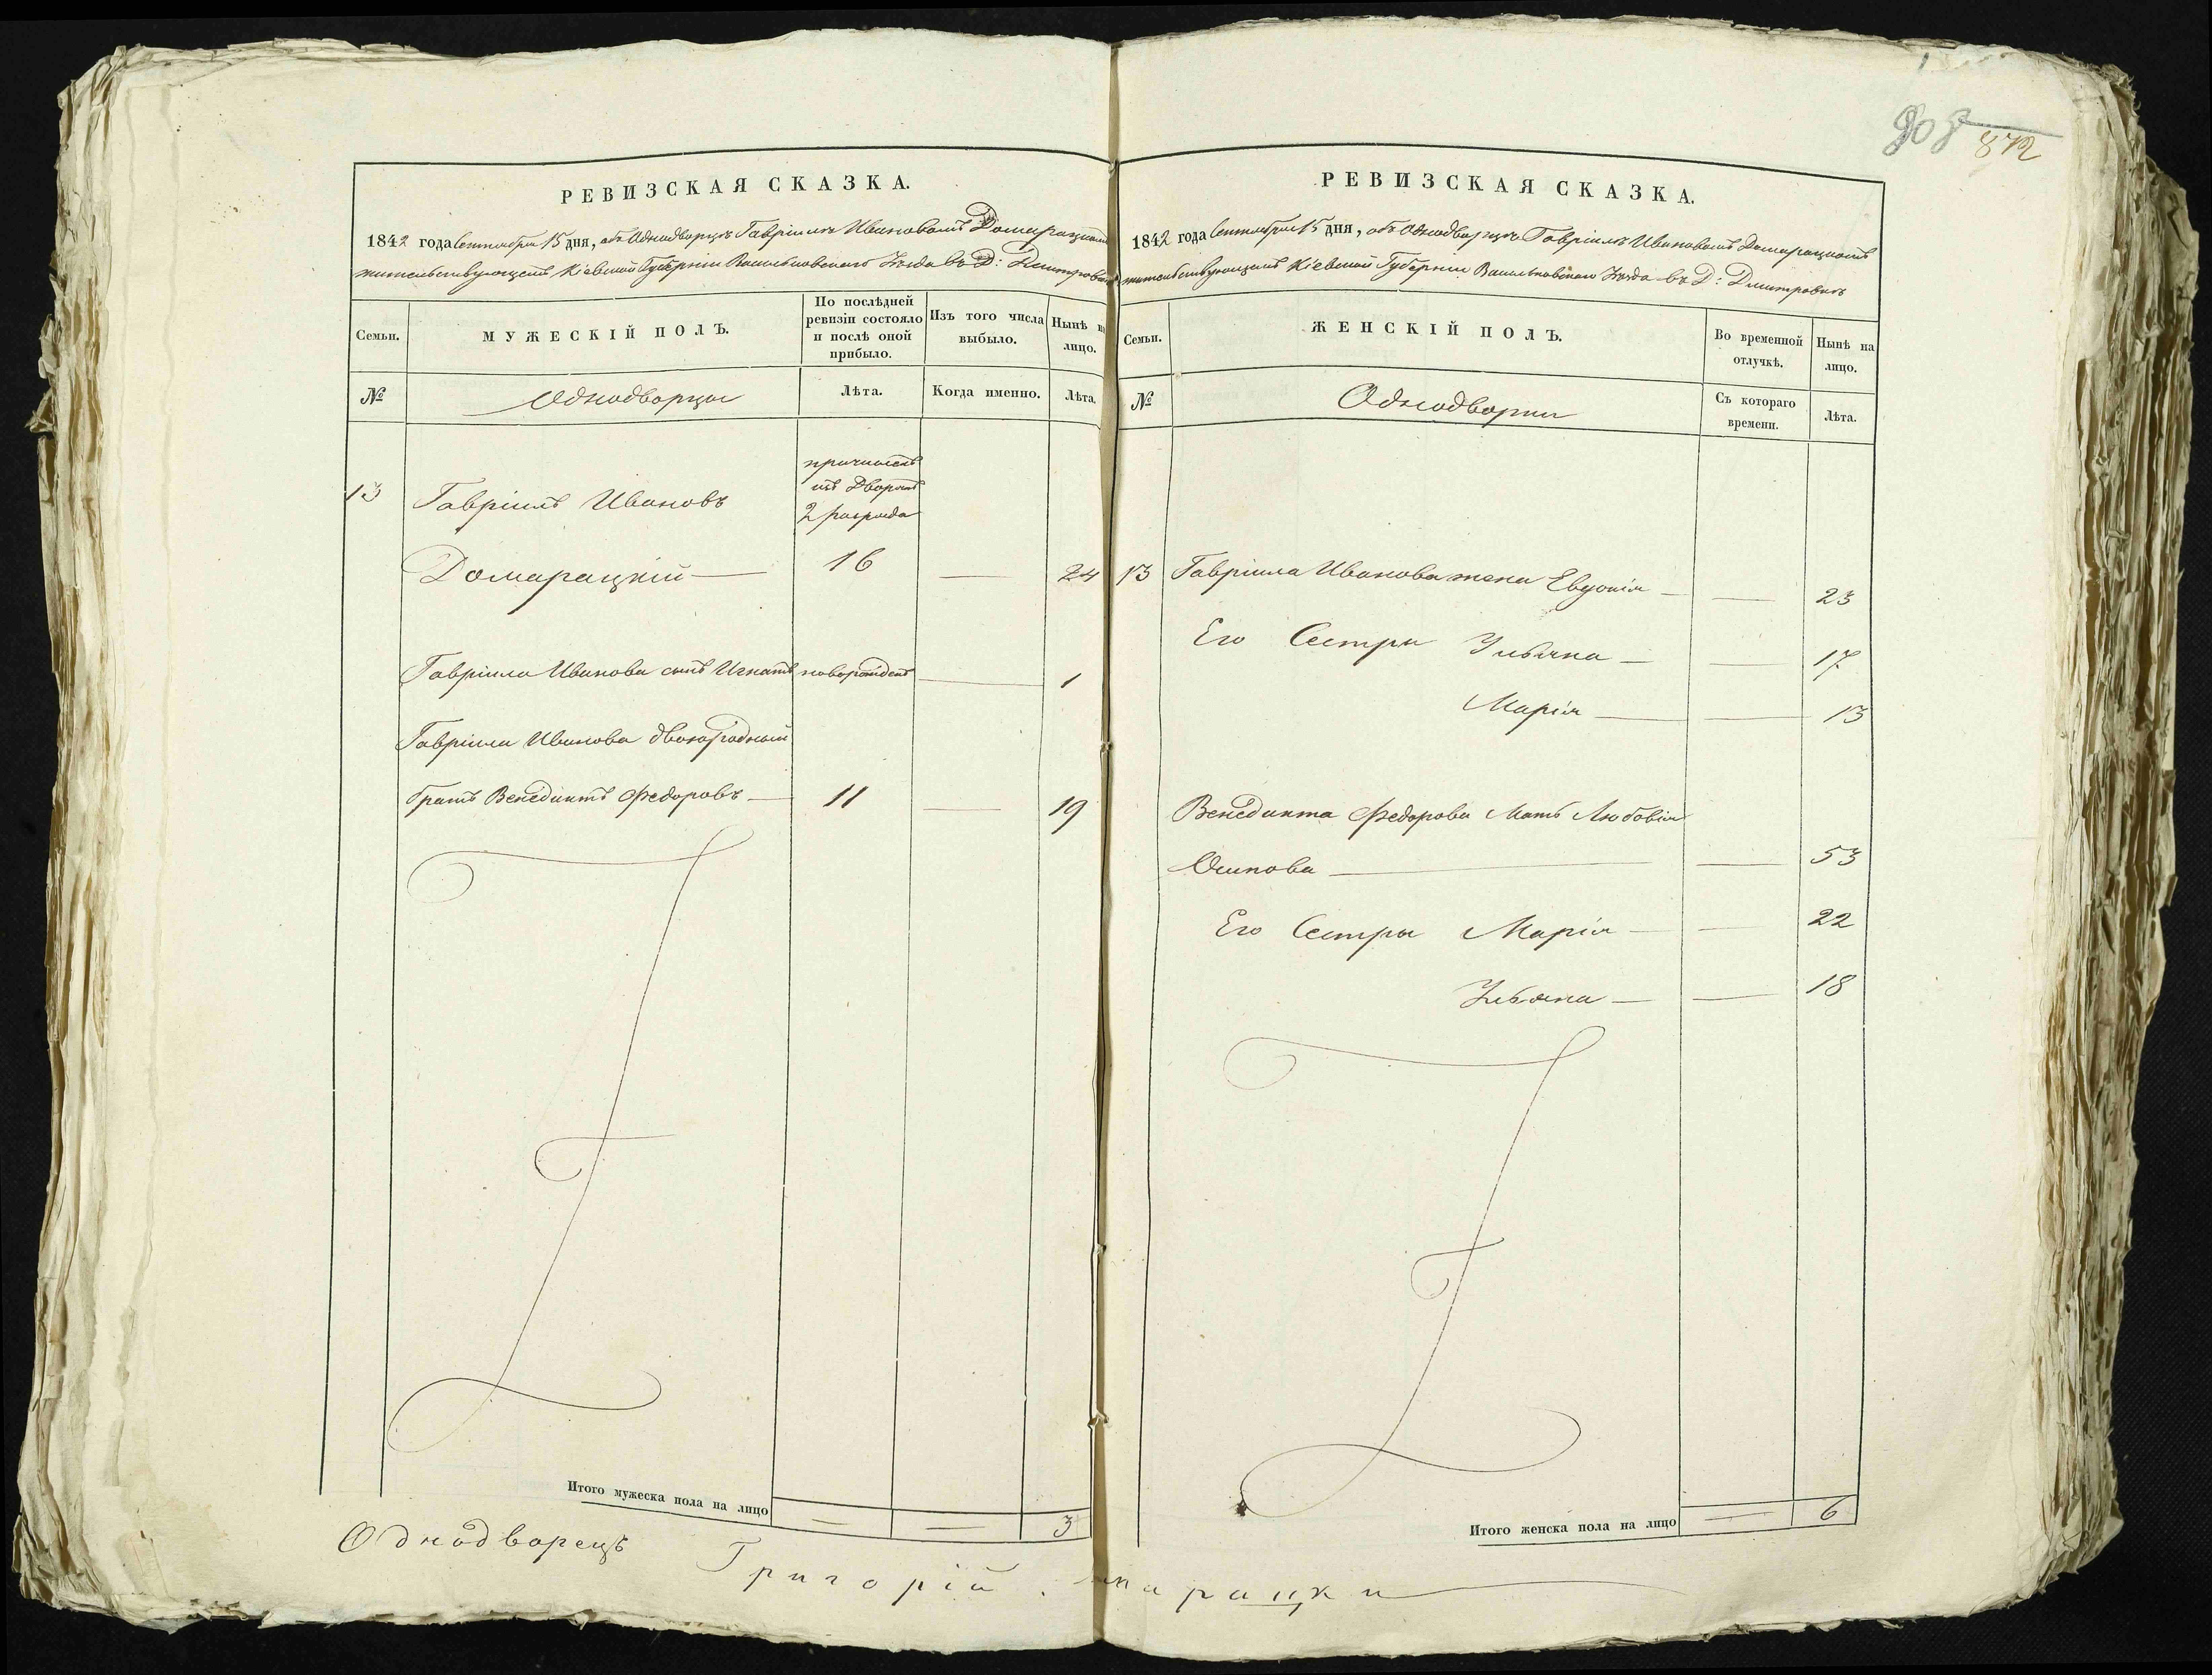 903 872
РЕВИЗСКАЯ СКАЗКА.
1842 года Сентября 15 дня, объ Однодворцѣ Гавріилѣ Ивановомъ Домарацкомъ
жительствующемъ Кіевской Губерніи Васильковскаго Уѣзда въ Д: Дмитровкѣ
Семьи.
МУЖЕСКІЙ ПОЛЪ.
По послѣдней ревизіи состояло и послѣ оной прибыло.
Изъ того числа выбыло.
Нынѣ на лицо.
№
Однодворцы
Лѣта.
Когда именно.
Лѣта.
причисленъ
изъ Дворянъ
2 разряда
13 Гавріилъ Ивановъ
Домарацкій — 16 — 24
Гавріила Иванова сынъ Игнатъ новорожденъ — 1
Гавріила Иванова двоюродный
братъ Венедиктъ Федоровъ — 11 — 19
Итого мужеска пола на лицо = = 3
РЕВИЗСКАЯ СКАЗКА.
1842 года Сентября 15 дня, объ Однодворцѣ Гавріилѣ Ивановомъ Домарацкомъ
жительствующемъ Кіевской Губерніи Васильковскаго Уѣзда въ Д: Дмитровкѣ
Семьи.
ЖЕНСКІЙ ПОЛЪ.
Во временной отлучкѣ.
Нынѣ на лицо.
№
Однодворки
Съ котораго времени.
Лѣта.
13 Гавріила Иванова жена Евдокія — — 23
Его Сестры Ульяна — — 17
Марія — — 13
Венедикта Федорова Мать Любовія
Осипова — — 53
Его Сестры Марія — — 22
Ульяна — — 18
Итого женска пола на лицо = 6
Однодворецъ
Григорій